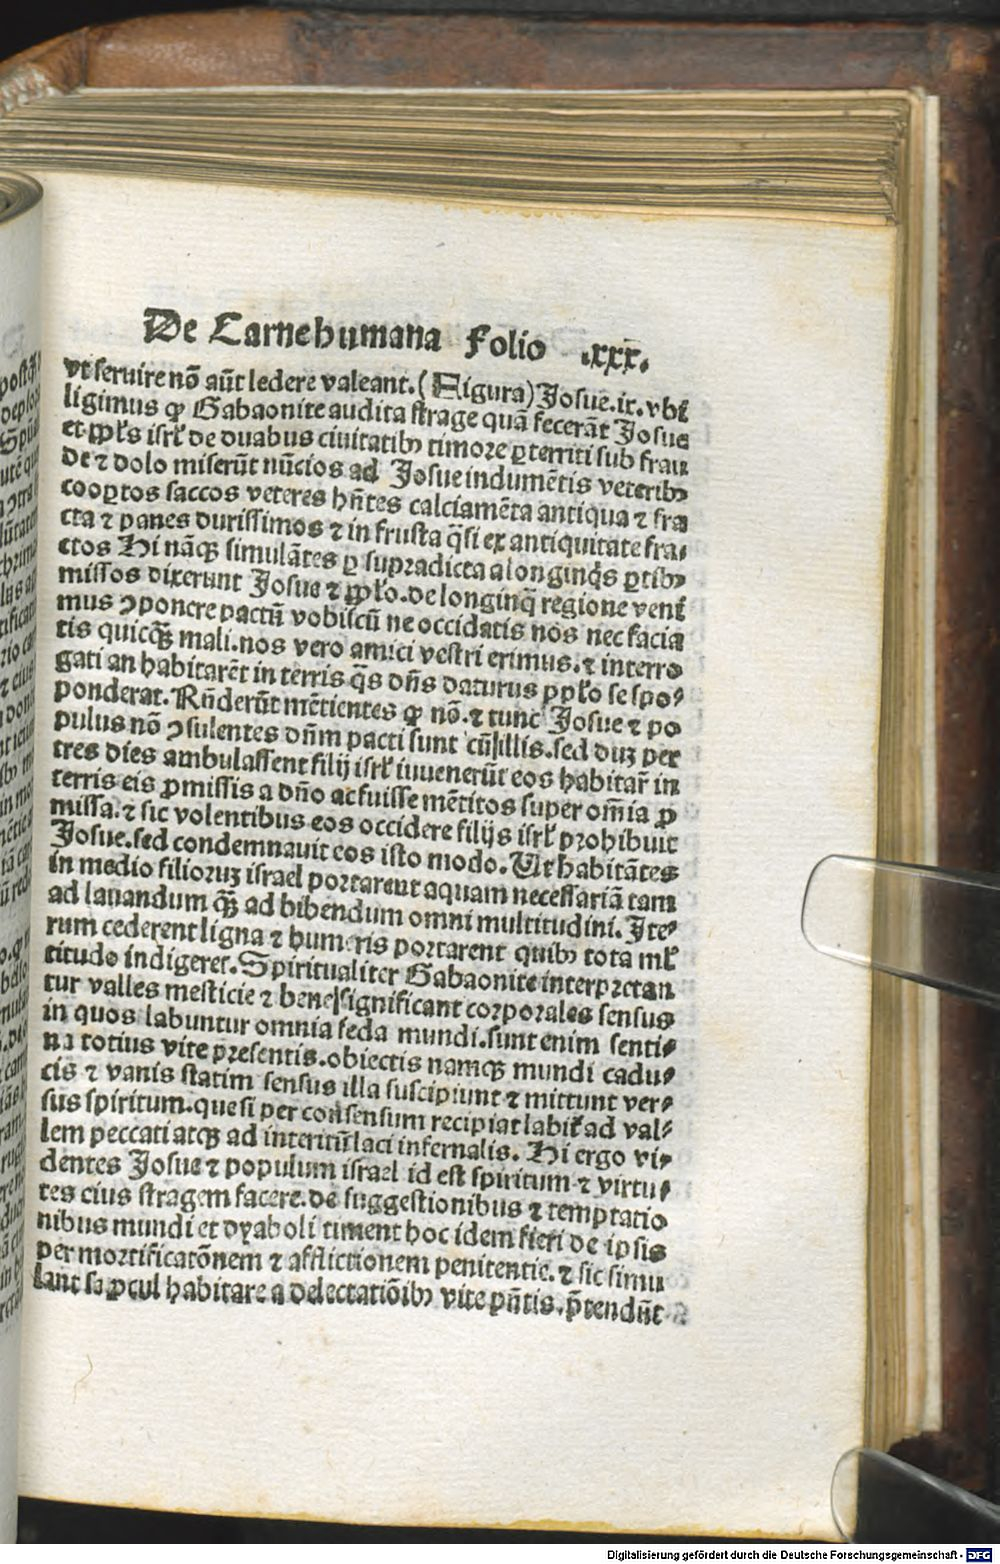 De Carne humana Folio .xxx.
vt seruire nō aūt ledere valeant. (Figura) Josue. ix. vbi
ligimus ꝙ Gabaonite audita strage quā fecerāt Josue
et ppl's isrl' de duabus ciuitatibꝫ timore ꝑterriti sub frau
de ⁊ dolo miserūt nūcios ad Josue indumētis veteribꝫ
cooꝑtos saccos veteres hñtes calciamēta antiqua ⁊ fra
cta ⁊ panes durissimos ⁊ in frusta q̄si ex antiquitate fra⸗
ctos Hi nāqꝫ simulātes ꝑ supradicta a longinq̄s ꝑtibꝫ
missos dixerunt Josue ⁊ ppl'o. de longinq̄ regione veni
mus ꝯponere pactū vobiscū ne occidatis nos nec facia
tis quicqꝫ mali. nos vero amici vestri erimus. ⁊ interro
gati an habitarēt in terris q̄s dñs daturus ꝑ ppl'o se spo⸗
ponderat. Rñderūt mētientes ꝙ nō. ⁊ tunc Josue ⁊ po
pulus nō ꝯsulentes dñm pacti sunt cū illis. sed duꝫ per
tres dies ambulassent filij isrl' iuuenerūt eos habitar̄ in
terris eis ꝓmissis a dño ac fuisse mētitos super om̄ia ꝓ
missa. ⁊ sic volentibus eos occidere filijs isrl' prohibuit
Josue. sed condemnauit eos isto modo. Ut habitātes
in medio filioruꝫ israel portarent aquam necessariā tam
ad lauandum qꝫ ad bibendum omni multitudini. Ite⸗
rum cederent ligna ⁊ humeris portarent quibꝫ tota ml'
titudo indigeret. Spiritualiter Gabaonite interpretan
tur valles mesticie ⁊ bene significant corporales sensus
in quos labuntur omnia feda mundi. sunt enim senti⸗
na totius vite presentis. obiectis namqꝫ mundi cadu⸗
cis ⁊ vanis statim sensus illa suscipiunt ⁊ mittunt ver⸗
sus spiritum. que si per consensum recipiat labit̄ ad val⸗
lem peccati atqꝫ ad interitū laci infernalis. Hi ergo vi⸗
dentes Josue ⁊ populum israel id est spiritum ⁊ virtu⸗
tes eius stragem facere. de suggestionibus ⁊ temptatio
nibus mundi et dyaboli timent hoc idem fieri de ipsis
per mortificatōnem ⁊ afflictionem penitentie. ⁊ sic simu
lant se ꝓcul habitare a delectatiōibꝫ vite pñtis. p̄tendūt
Digitalisierung gefördert durch die Deutsche Forschungsgemeinschaft - DFG